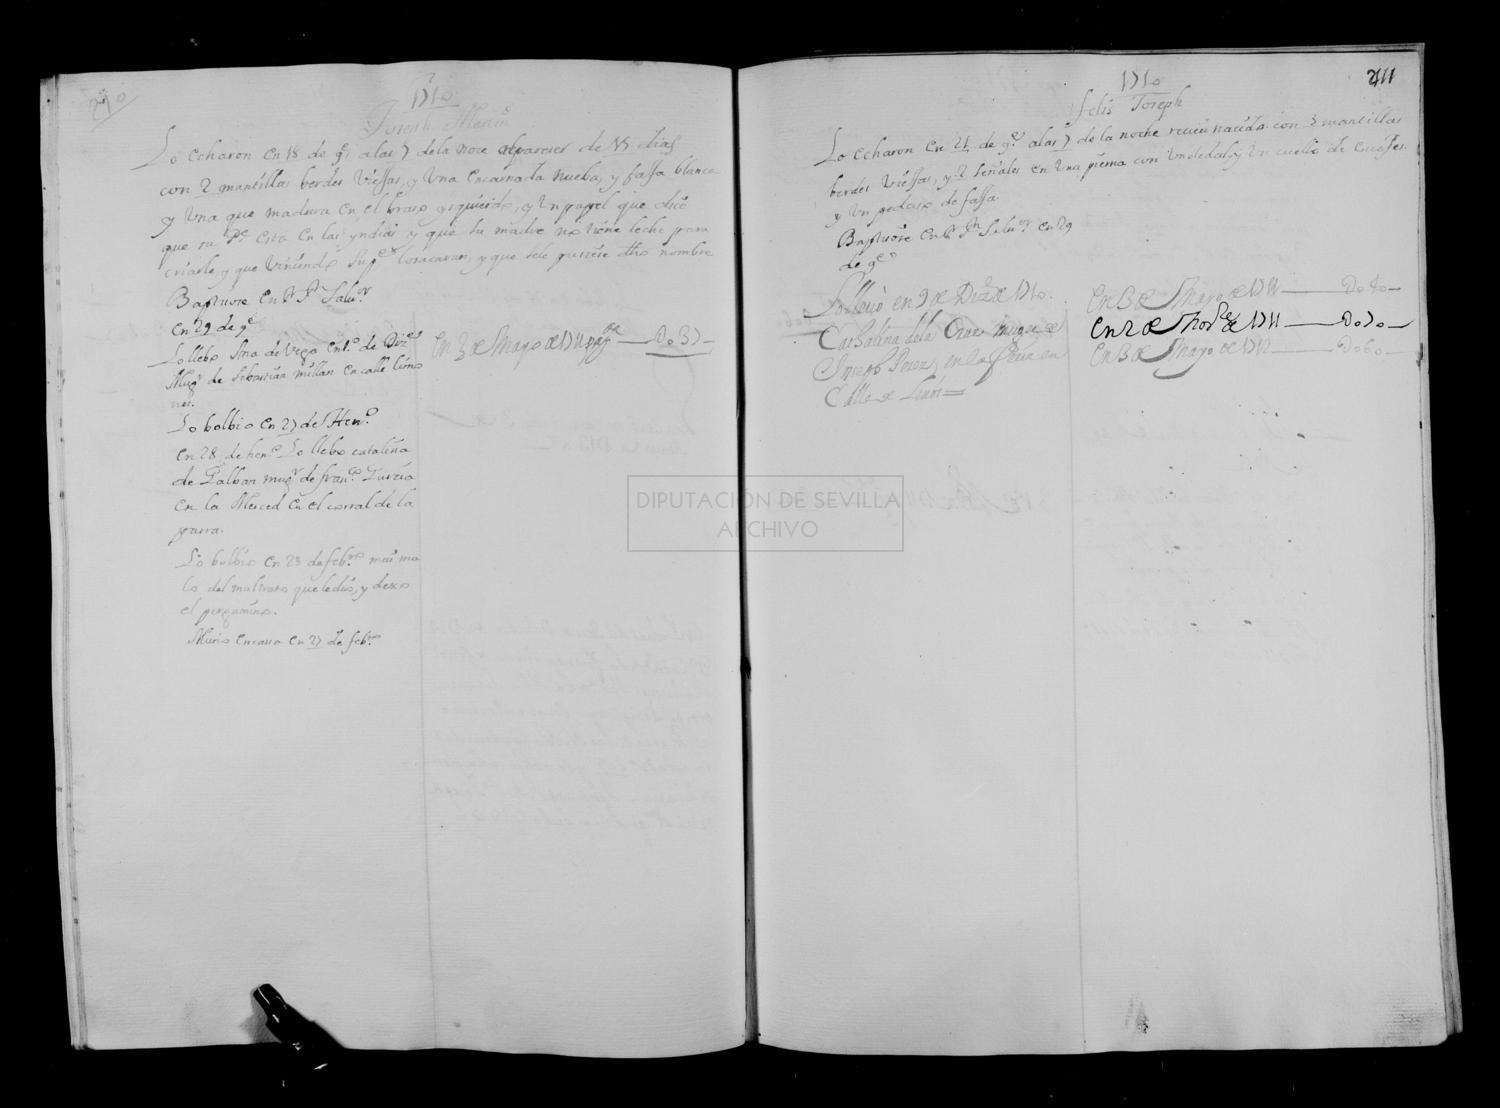 270
1710
Joseph Martin
Lo echaron en 18 de 9e, alas 7 de la noce al pareser de 15 dias
con 2 mantillas berdes viejas, y una encarnada nueba, y fassa blanca
y una que madura en el braso ysquierdo, y un papel que dise
que su Pe esta en las yndias y que su madre no tiene leche para
criarle, y que viniendo su pe lo sacaran, y que sele pusiese dho nombre
Baptisose en Sr Sn Salor
en 29 de 9e
Lo llebo Ana de Vega en 1o de Dize
Mugr de Sebastian millan en calle limo
nes.
Lo bolbio en 27 de Heno
en 28 de heno Lo llebo catalina
de Galban mugr de franco Garcia
en la Merced en el corral de la
parra.
Lo bolbio en 23 de febro mui ma
lo del maltrato que le dio, y dexo
el pergamino.
Murio en casa en 27 de febro
en 3 de Mayo de 1711 pge Do 37
211
1710
felis Joseph
Lo echaron en 24 de 9e alas 7 de la noche resien nasido con 3 mantillas
berdes viejas, y 2 señales en una pierna con un dedal y un cuello de encajes
y un pedaso de fassa.
Baptisose en Sr Sn Salor en 29
de 9e
Lo llevo en 9 de Dize de 1710.
Cathalina de la Cruz muger de
Perez, en la en
Calle de
en 3 de Mayo de 1711 Do 80
en 2 de Nore de 1711 Do 70
en 3 de Mayo de 1712 Do 60
DIPUTACIÓN DE SEVILLA
ARCHIVO